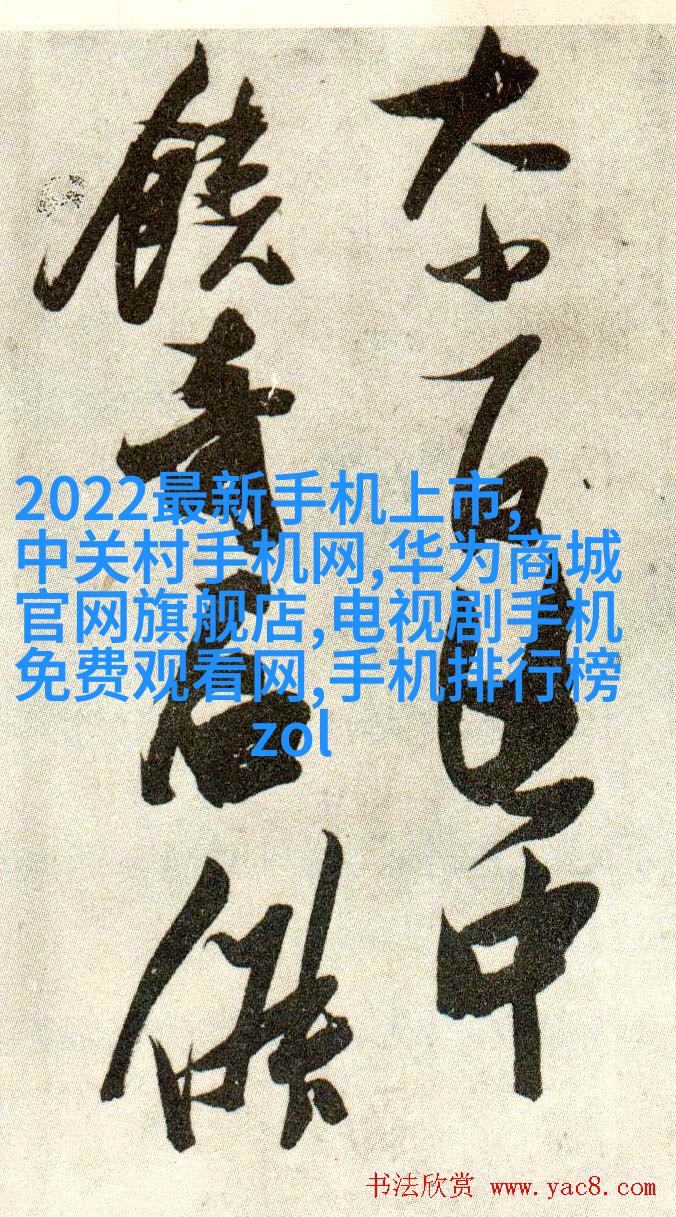 大小百里中
饒奇
2022最新手机上市,
中关村手机网,华为商城
官网旗舰店,电视剧手机
免费观看网,手机排行榜
zol
书法欣赏 www.yac8.com